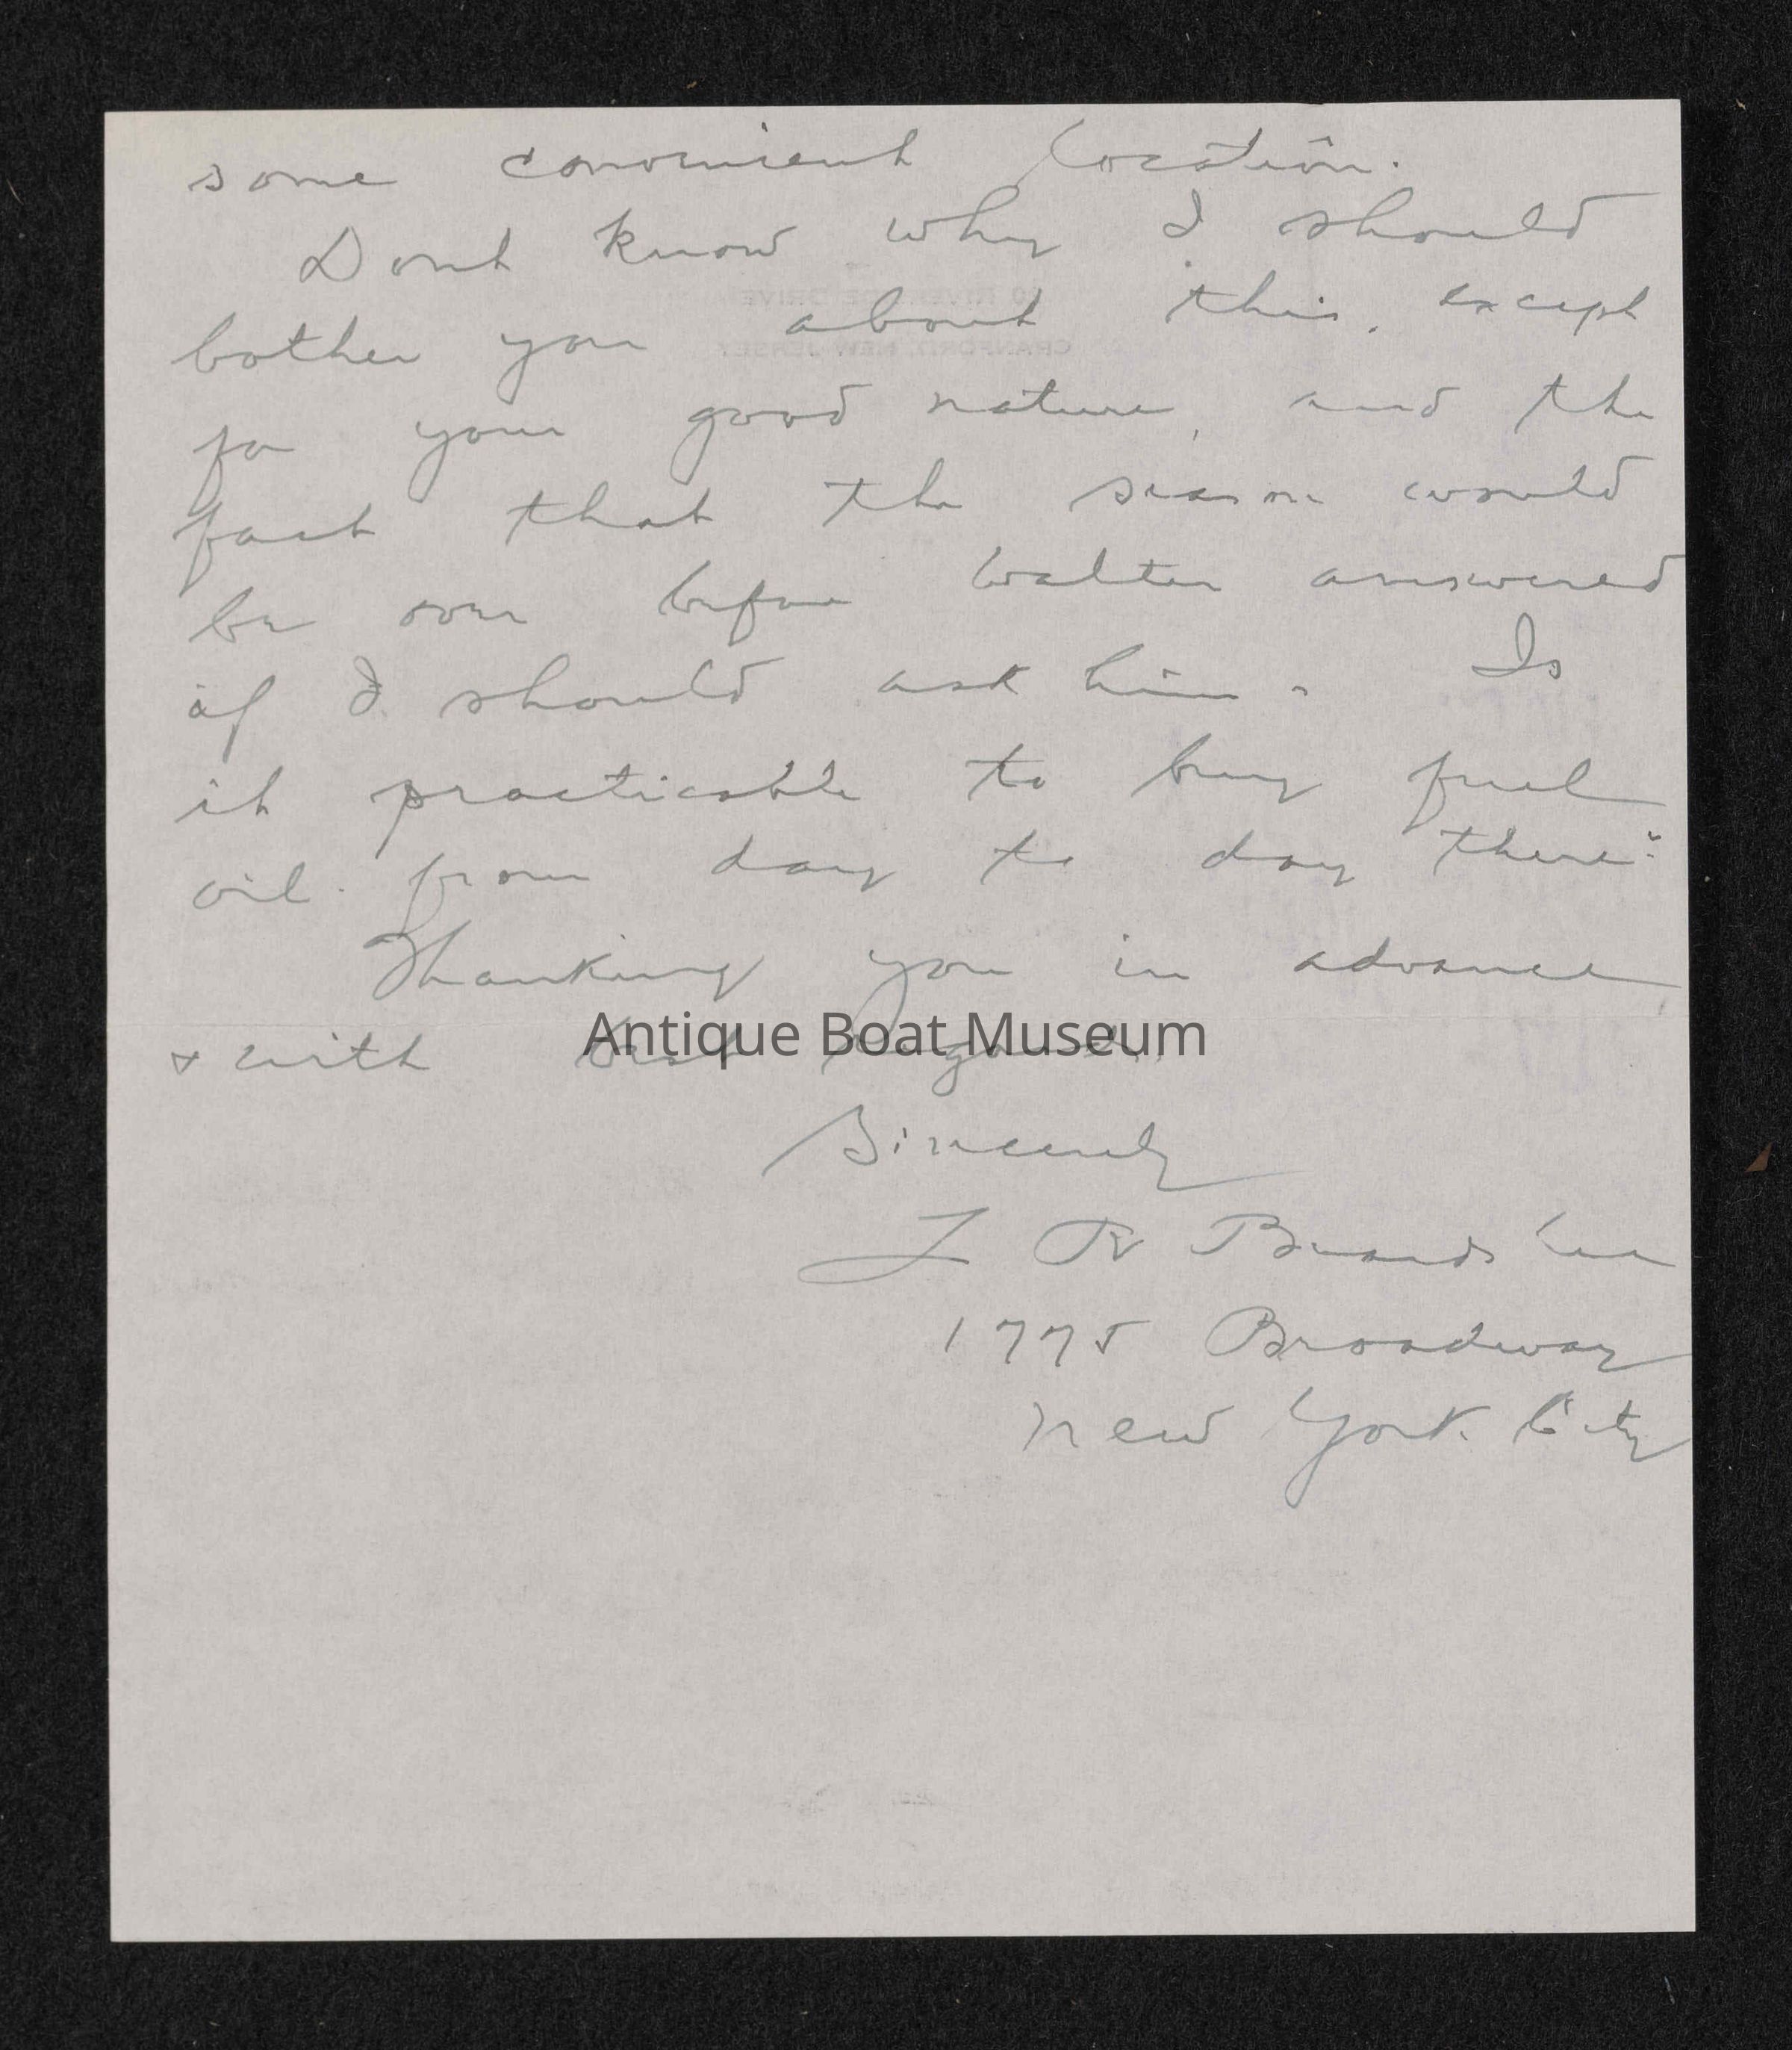 some convenient location.
Dont know why I should
bother you about this, except
for your good nature, and the
fact that the season would
be over before Walter answered
if I should ask him. Is
it practicable to buy fuel
oil from day to day there?
Thanking you in advance
& with best regards.
Antique Boat Museum
Sincerely
R
1775 Broadway
New York City
RIVERSIDE DRIVE
CRANFORD, NEW JERSEY